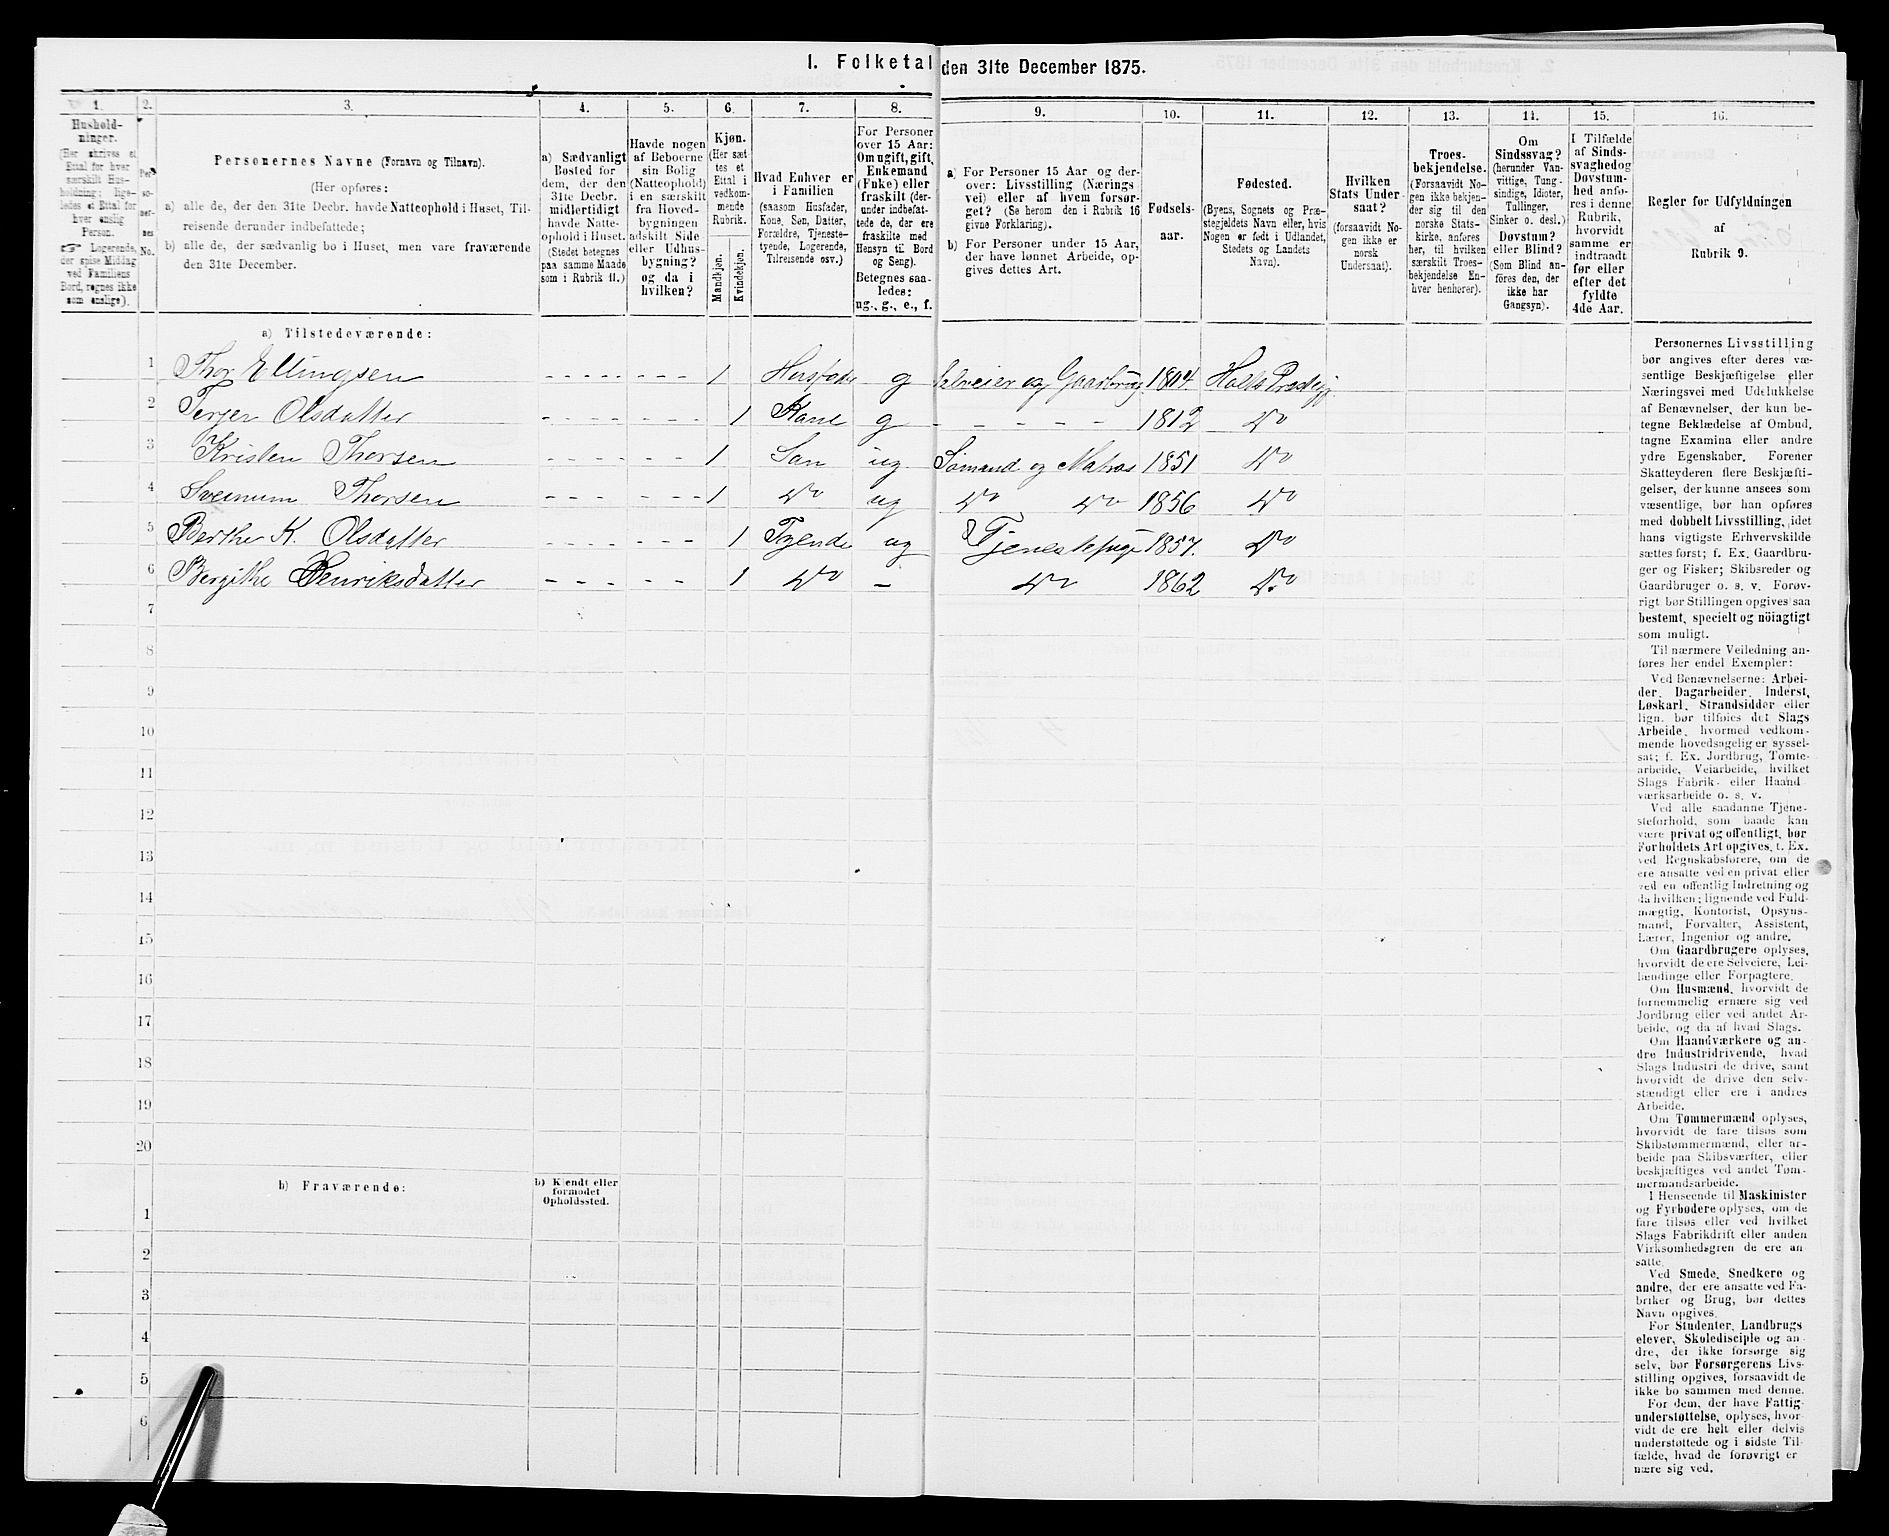 I. Folketal den 31te December 1875.
1. 2. 3. 4. 5. 6. 7. 8. 9. 10. 11. 12. 13. 14. 15. 16.
Hushold-
ninger.
(Her skrives et
Ettal for hver
særskilt Hus-
holdning; lige-
ledes et Ettal for
hver enslig
Person.
☞ Logerende,
der spise Middag
ved Familiens
Bord, regnes ikke
som enslige).
Per-
so-
ner-
nes
No.
Personernes Navne (Fornavn og Tilnavn).
(Her opføres:
a) alle de, der den 31te Decbr. havde Natteophold i Huset, Til-
reisende derunder indbefattede;
b) alle de, der sædvanlig bo i Huset, men vare fraværende
den 31te December.
a) Sædvanligt
Bosted for
dem, der den
31te Decbr.
midlertidigt
havde Natte-
ophold i Huset.
(Stedet betegnes
paa samme Maade
som i Rubrik 11.)
Havde nogen
af Beboerne
sin Bolig
(Natteophold)
i en særskilt
fra Hoved-
bygningen
adskilt Side
eller Udhus-
bygning?
og da i
hvilken?
Kjøn.
(Her sæt-
tes et
Ettal i
vedkom-
mende
Rubrik.
Mandkjøn.
Kvindekjøn.
Hvad Enhver er
i Familien
(saasom Husfader,
Kone, Søn, Datter,
Forældre, Tjeneste-
tyende, Logerende,
Tilreisende osv.)
For Personer
over 15 Aar:
Om ugift, gift,
Enkemand
(Enke) eller
fraskilt (der-
under indbefat-
tede de, der ere
fraskilte med
Hensyn til Bord
og Seng).
Betegnes saa-
ledes:
ug., g., e., f.
a) For Personer 15 Aar og der-
over: Livsstilling (Nærings
vei) eller af hvem forsør-
get? (Se herom den i Rubrik 16
givne Forklaring).
b) For Personer under 15 Aar,
der have lønnet Arbeide, op-
gives dettes Art.
Fødsels-
aar.
Fødested.
(Byens, Sognets og Præ-
stegjeldets Navn eller, hvis
Nogen er født i Udlandet,
Stedets og Landets
Navn).
Hvilken
Stats Under-
saat?
(forsaavidt No-
gen ikke er
norsk
Undersaat).
Troes-
bekjendelse.
(Forsaavidt No-
gen ikke bekjen-
der sig til den
norske Stats-
kirke, anføres
her, til hvilken
særskilt Troes-
bekjendelse En-
hver henhører).
Om
Sindssvag?
(herunder Van-
vittige, Tung-
sindige, Idioter,
Tullinger,
Sinker o. desl.)
Døvstum?
eller Blind?
(Som Blind an-
føres den, der
ikke har
Gangsyn).
I Tilfælde
af Sinds-
svaghedog
Døvstum-
hed anfø-
res i denne
Rubrik,
hvorvidt
samme er
indtraadt
før eller
efter det
fyldte
4de Aar.
Regler for Udfyldningen
af
Rubrik 9.
a) Tilstedeværende:
1 Thor Ellingsen 1 Husfader g Selveier og Gaardbrug. 1804. Holts Prestegj.
2 Olsdatter 1 Kone g 1812 Do
3 Kristen Thorsen 1 Søn ug. Sømand og Matros 1851 Do
4 Thorsen 1 Do ug Do Do 1856 Do
5 Berthe K. Olsdatter 1 Tyende ug Tjenestepige 1857. Do
6 Bergithe Henriksdatter 1 Do - Do 1862 Do
7
8
9
10
11
12
13
14
15
16
17
18
19
20
b) Fraværende:
b) Kjendt eller
formodet
Opholdssted.
1
2
3
4
5
6
Personernes Livsstilling
bør angives efter deres væ-
sentlige Beskjæftigelse eller
Næringsvei med Udelukkelse
af Benævnelser, der kun be-
tegne Beklædelse af Ombud,
tagne Examina eller andre
ydre Egenskaber. Forener
Skatteyderen flere Beskjæfti-
gelser, der kunne ansees som
væsentlige, bør han opføres
med dobbelt Livsstilling, idet
hans vigtigste Erhvervskilde
sættes først; f. Ex. Gaardbru-
ger og Fisker; Skibsreder og
Gaardbruger o. s. v. Forøv-
rigt bør Stillingen opgives saa
bestemt, specielt og nöiagtigt
som muligt.
Til nærmere Veiledning an-
føres her endel Exempler:
Ved Benævnelserne: Arbei-
der, Dagarbeider, Inderst,
Løskarl, Strandsidder eller
lign. bør tilføies det Slags
Arbeide, hvormed vedkom-
mende hovedsagelig er syssel-
sat; f. Ex. Jordbrug, Tomte-
arbeide, Veiarbeide, hvilket
Slags Fabrik- eller Haand
værksarbeide o. s. v.
Ved alle saadanne Tjene-
steforhold, som baade kan
være privat og offentligt, bør
Forholdets Art opgives, t. Ex.
ved Regnskabsførere, om de
ere ansatte ved en privat eller
ved en offentlig Indretning og
da hvilken; lignende ved Fuld-
mægtig, Kontorist, Opsyns-
mand, Forvalter, Assistent,
Lærer, Ingeniør og andre.
Om Gaardbrugere oplyses,
hvorvidt de ere Selveiere, Lei-
lændinge eller Forpagtere.
Om Husmænd, hvorvidt de
fornemmelig ernære sig ved
Jordbrug eller ved andet Ar-
beide, og da af hvad Slags.
Om Haandværkere og an-
dre Industridrivende, hvad
Slags Industri de drive, samt
hvorvidt de drive den selv-
stændigt eller ere i andres
Arbeide.
Om Tømmermænd oplyses,
hvorvidt de fare tilsøs som
Skibstømmermænd, eller ar-
beide paa Skibsværfter, eller
beskjæftiges ved andet Tøm-
mermandsarbeide.
I Henseende til Maskinister
og Fyrbødere oplyses, om de
fare tilsøs eller ved hvilket
Slags Fabrikdrift eller anden
Virksomhedsgren de ere an
satte.
Ved Smede, Snedkere og
andre, der ere ansatte ved Fa-
briker og Brug, bør dettes
Navn opgives.
For Studenter, Landbrugs
elever, Skoledisciple og an-
dre, der ikke forsørge sig
selv, bør Forsørgerens Livs-
stilling opgives, forsaavidt de
ikke bo sammen med denne.
For dem, der have Fattig-
understøttelse, oplyses, hvor-
vidt de ere helt eller delvis
understøttede og i sidste Til-
fælde, hvad de forøvrigt er
nære sig ved.